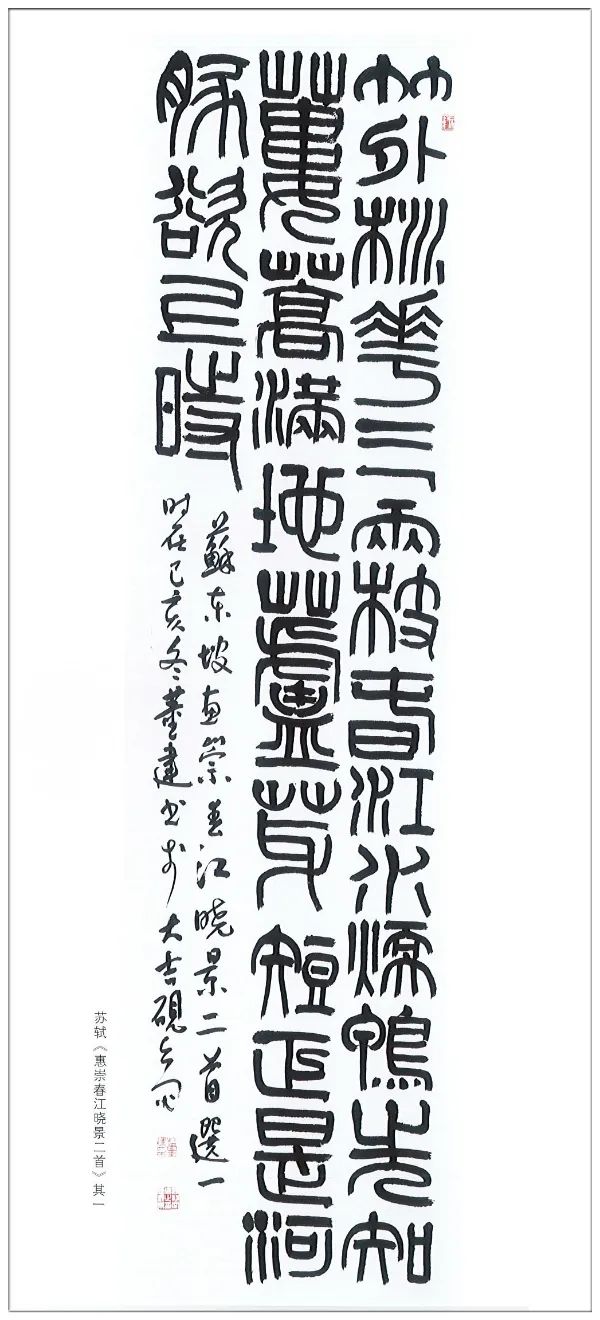 竹外桃花三兩枝春江水煗鴨先知
蔞蒿滿地蘆芽短正是河
豚欲上時
蘇东坡惠崇春江晓景二首選一
时在己亥冬董建书于大吉硯
苏轼《惠崇春江晓景二首》其一